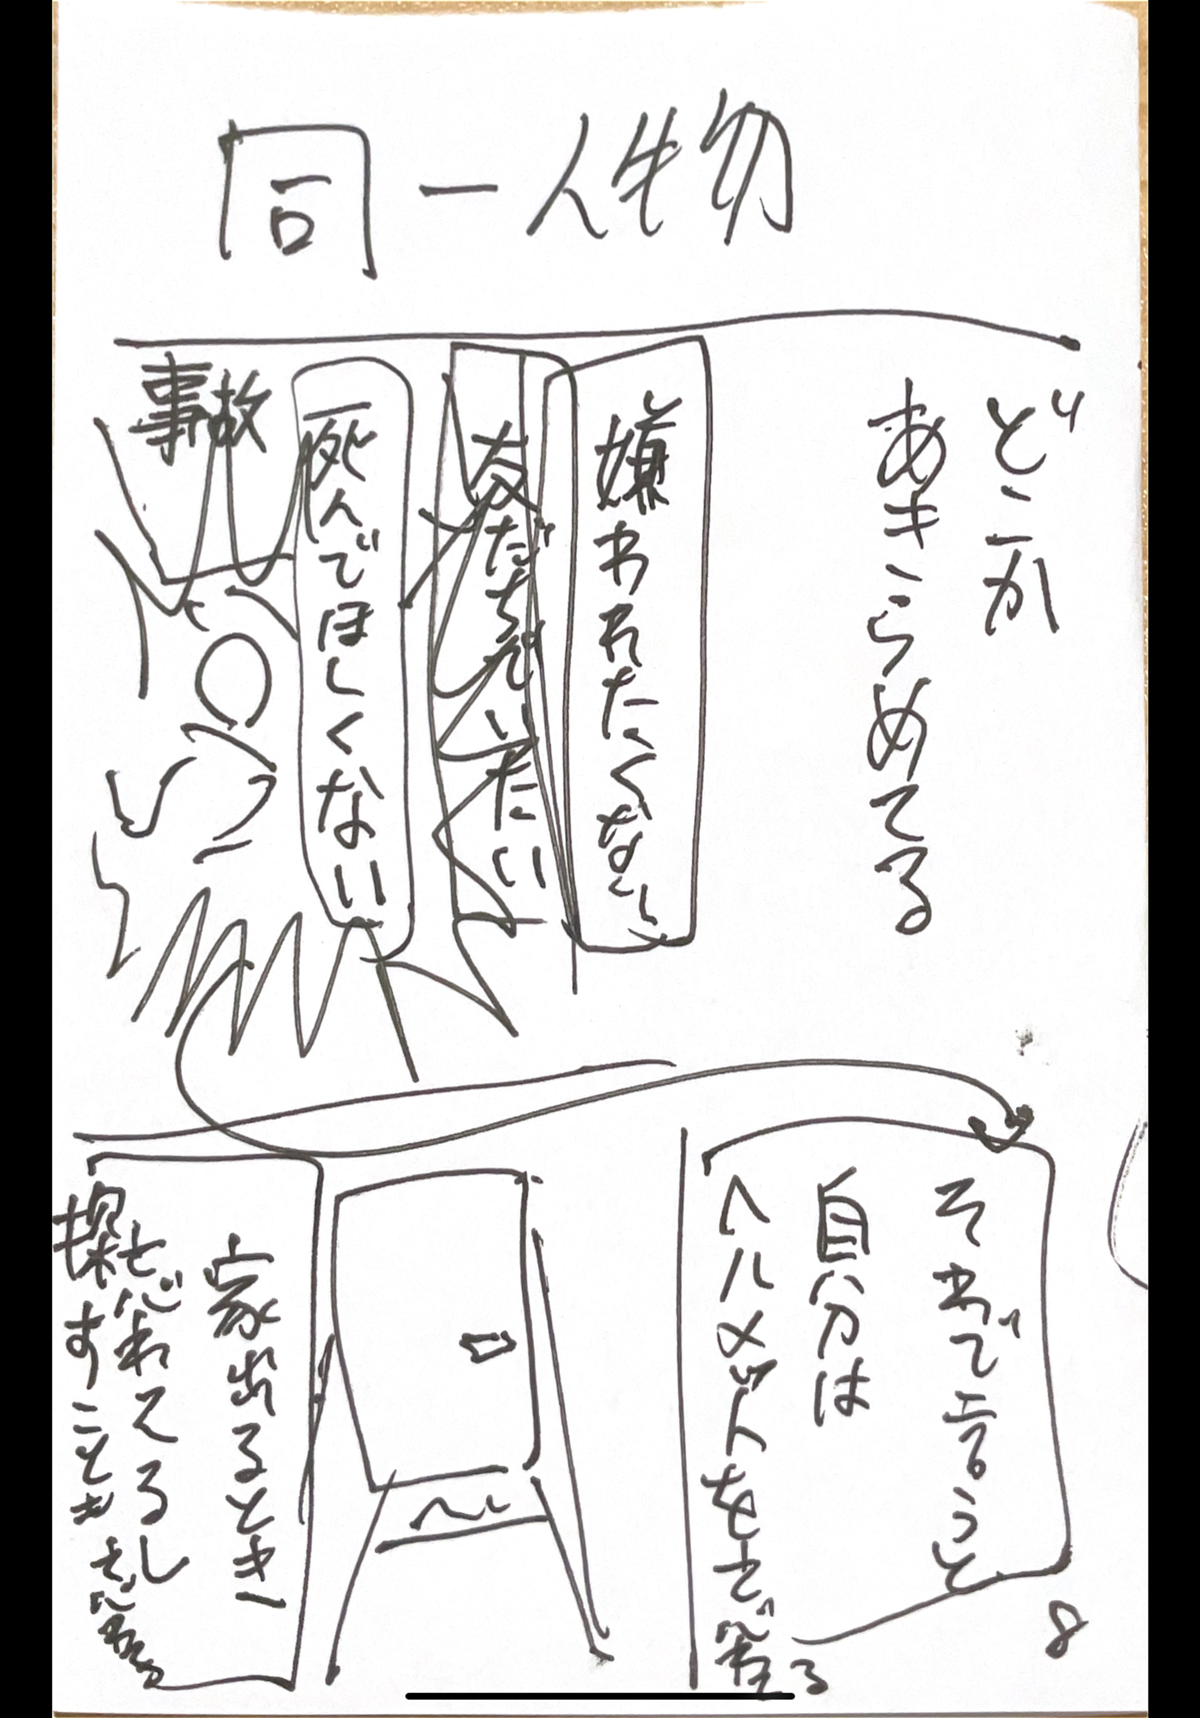 同一人物
どこか
あきらめてる
嫌われたくない
友だちでいたい
死んでほしくない
事故
それで言うと
自分は
ヘルメットをぜ
る
家出るとき
忘れてるし
探すことも
8